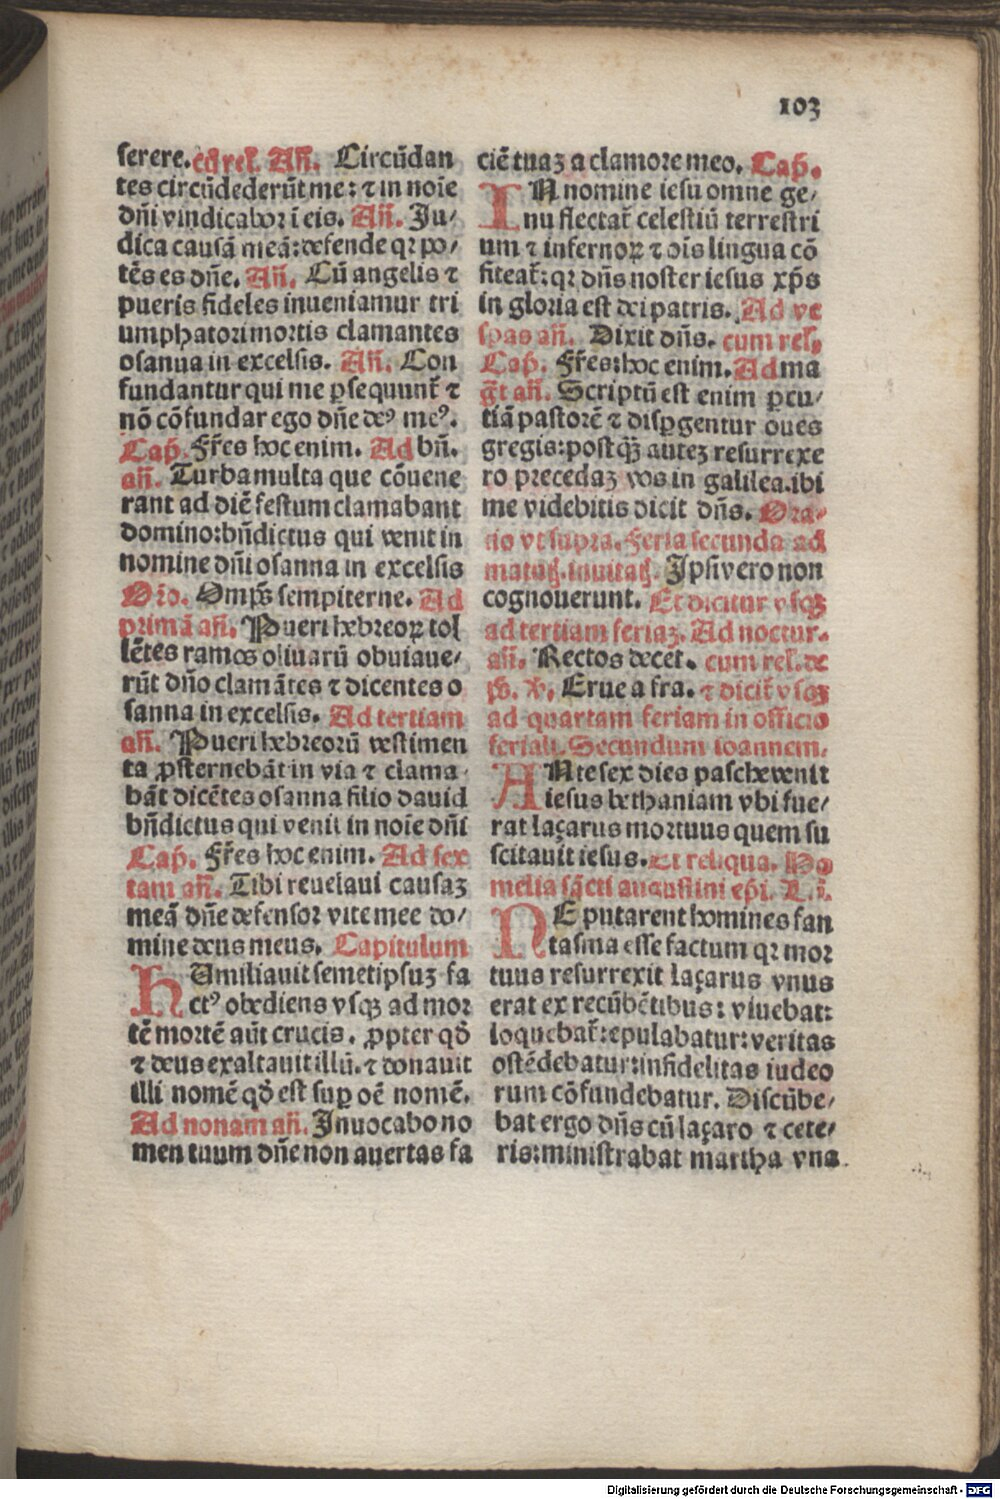 103
serere. cū rel. Añ. Circūdan
tes circūdederūt me: ⁊ in noīe
dñi vindicabor ī eis. Añ. Ju/
dica causā meā: defende qꝛ po/
tēs es dñe. Añ. Cū angelis ⁊
pueris fideles inueniamur tri
umphatori mortis clamantes
osanna in excelsis. Añ. Con
fundantur qui me ꝑsequunt᷑ ⁊
nō cōfundar ego dñe deꝰ meꝰ.
Cap̄. Fr̄es hoc enim. Ad bñ.
añ. Turba multa que cōuene
rant ad diē festum clamabant
domino: bñdictus qui venit in
nomine dñi osanna in excelsis
Oro. Omp̄s sempiterne. Ad
primā añ. Pueri hebreoꝝ tol
lētes ramos oliuarū obuiaue/
rūt dño clamātes ⁊ dicentes o
sanna in excelsis. Ad tertiam
añ. Pueri hebreorū vestimen
ta ꝓsternebāt in via ⁊ clama
bāt dicētes osanna filio dauid
bñdictus qui venit in noīe dñi
Cap̄. Fr̄es hoc enim. Ad sex
tam añ. Tibi reuelaui causaꝫ
meā dñe defensor vite mee do/
mine deus meus. Capitulum
HUmiliauit semetipsuꝫ fa
ctꝰ obediens vsqꝫ ad mor
tē mortē aūt crucis. ꝓpter qd̄
⁊ deus exaltauit illū. ⁊ donauit
illi nomē qd̄ est suꝑ oē nomē.
Ad nonam añ. Jnuocabo no
men tuum dñe non auertas fa
ciē tuaꝫ a clamore meo. Cap̄.
IN nomine iesu omne ge/
nu flectat᷑ celestiū terrestri
um ⁊ infernoꝝ ⁊ oīs lingua cō
fiteat᷑: qꝛ dñs noster iesus xp̄s
in gloria est dei patris. Ad ve
spas añ. Dixit dñs. cum rel.
Cap̄. Fr̄es: hoc enim. Ad ma
gt̄ añ. Scriptū est enim ꝑcu/
tiā pastorē ⁊ disꝑgentur oues
gregis: postqꝫ̄ auteꝫ resurrexe
ro precedaꝫ vos in galilea. ibi
me videbitis dicit dñs. Ora-
tio vt supra. Feria secunda ad
matuꝭ. inuitaꝭ. Jpsi vero non
cognouerunt. Et dicitur vsqꝫ
ad tertiam feriaꝫ. Ad noctur.
añ. Rectos decet. cum rel. de
ps̄. ℣. Erue a fra. ⁊ dicit᷑ vsqꝫ
ad quartam feriam in officio
feriali. Secundum ioannem.
ANte sex dies pasche venit
iesus bethaniam vbi fue/
rat laçarus mortuus quem su
scitauit iesus. Et reliqua. Ho
melia sācti augustini ep̄i. L.i.
NE putarent homines fan
tasma esse factum qꝛ mor
tuus resurrexit laçarus vnus
erat ex recūbētibus: viuebat:
loquebat᷑: epulabatur: veritas
ostēdebatur: infidelitas iudeo
rum cōfundebatur. Discūbe/
bat ergo dñs cū laçaro ⁊ cete/
ris: ministrabat martha vna
Digitalisierung gefördert durch die Deutsche Forschungsgemeinschaft - DFG